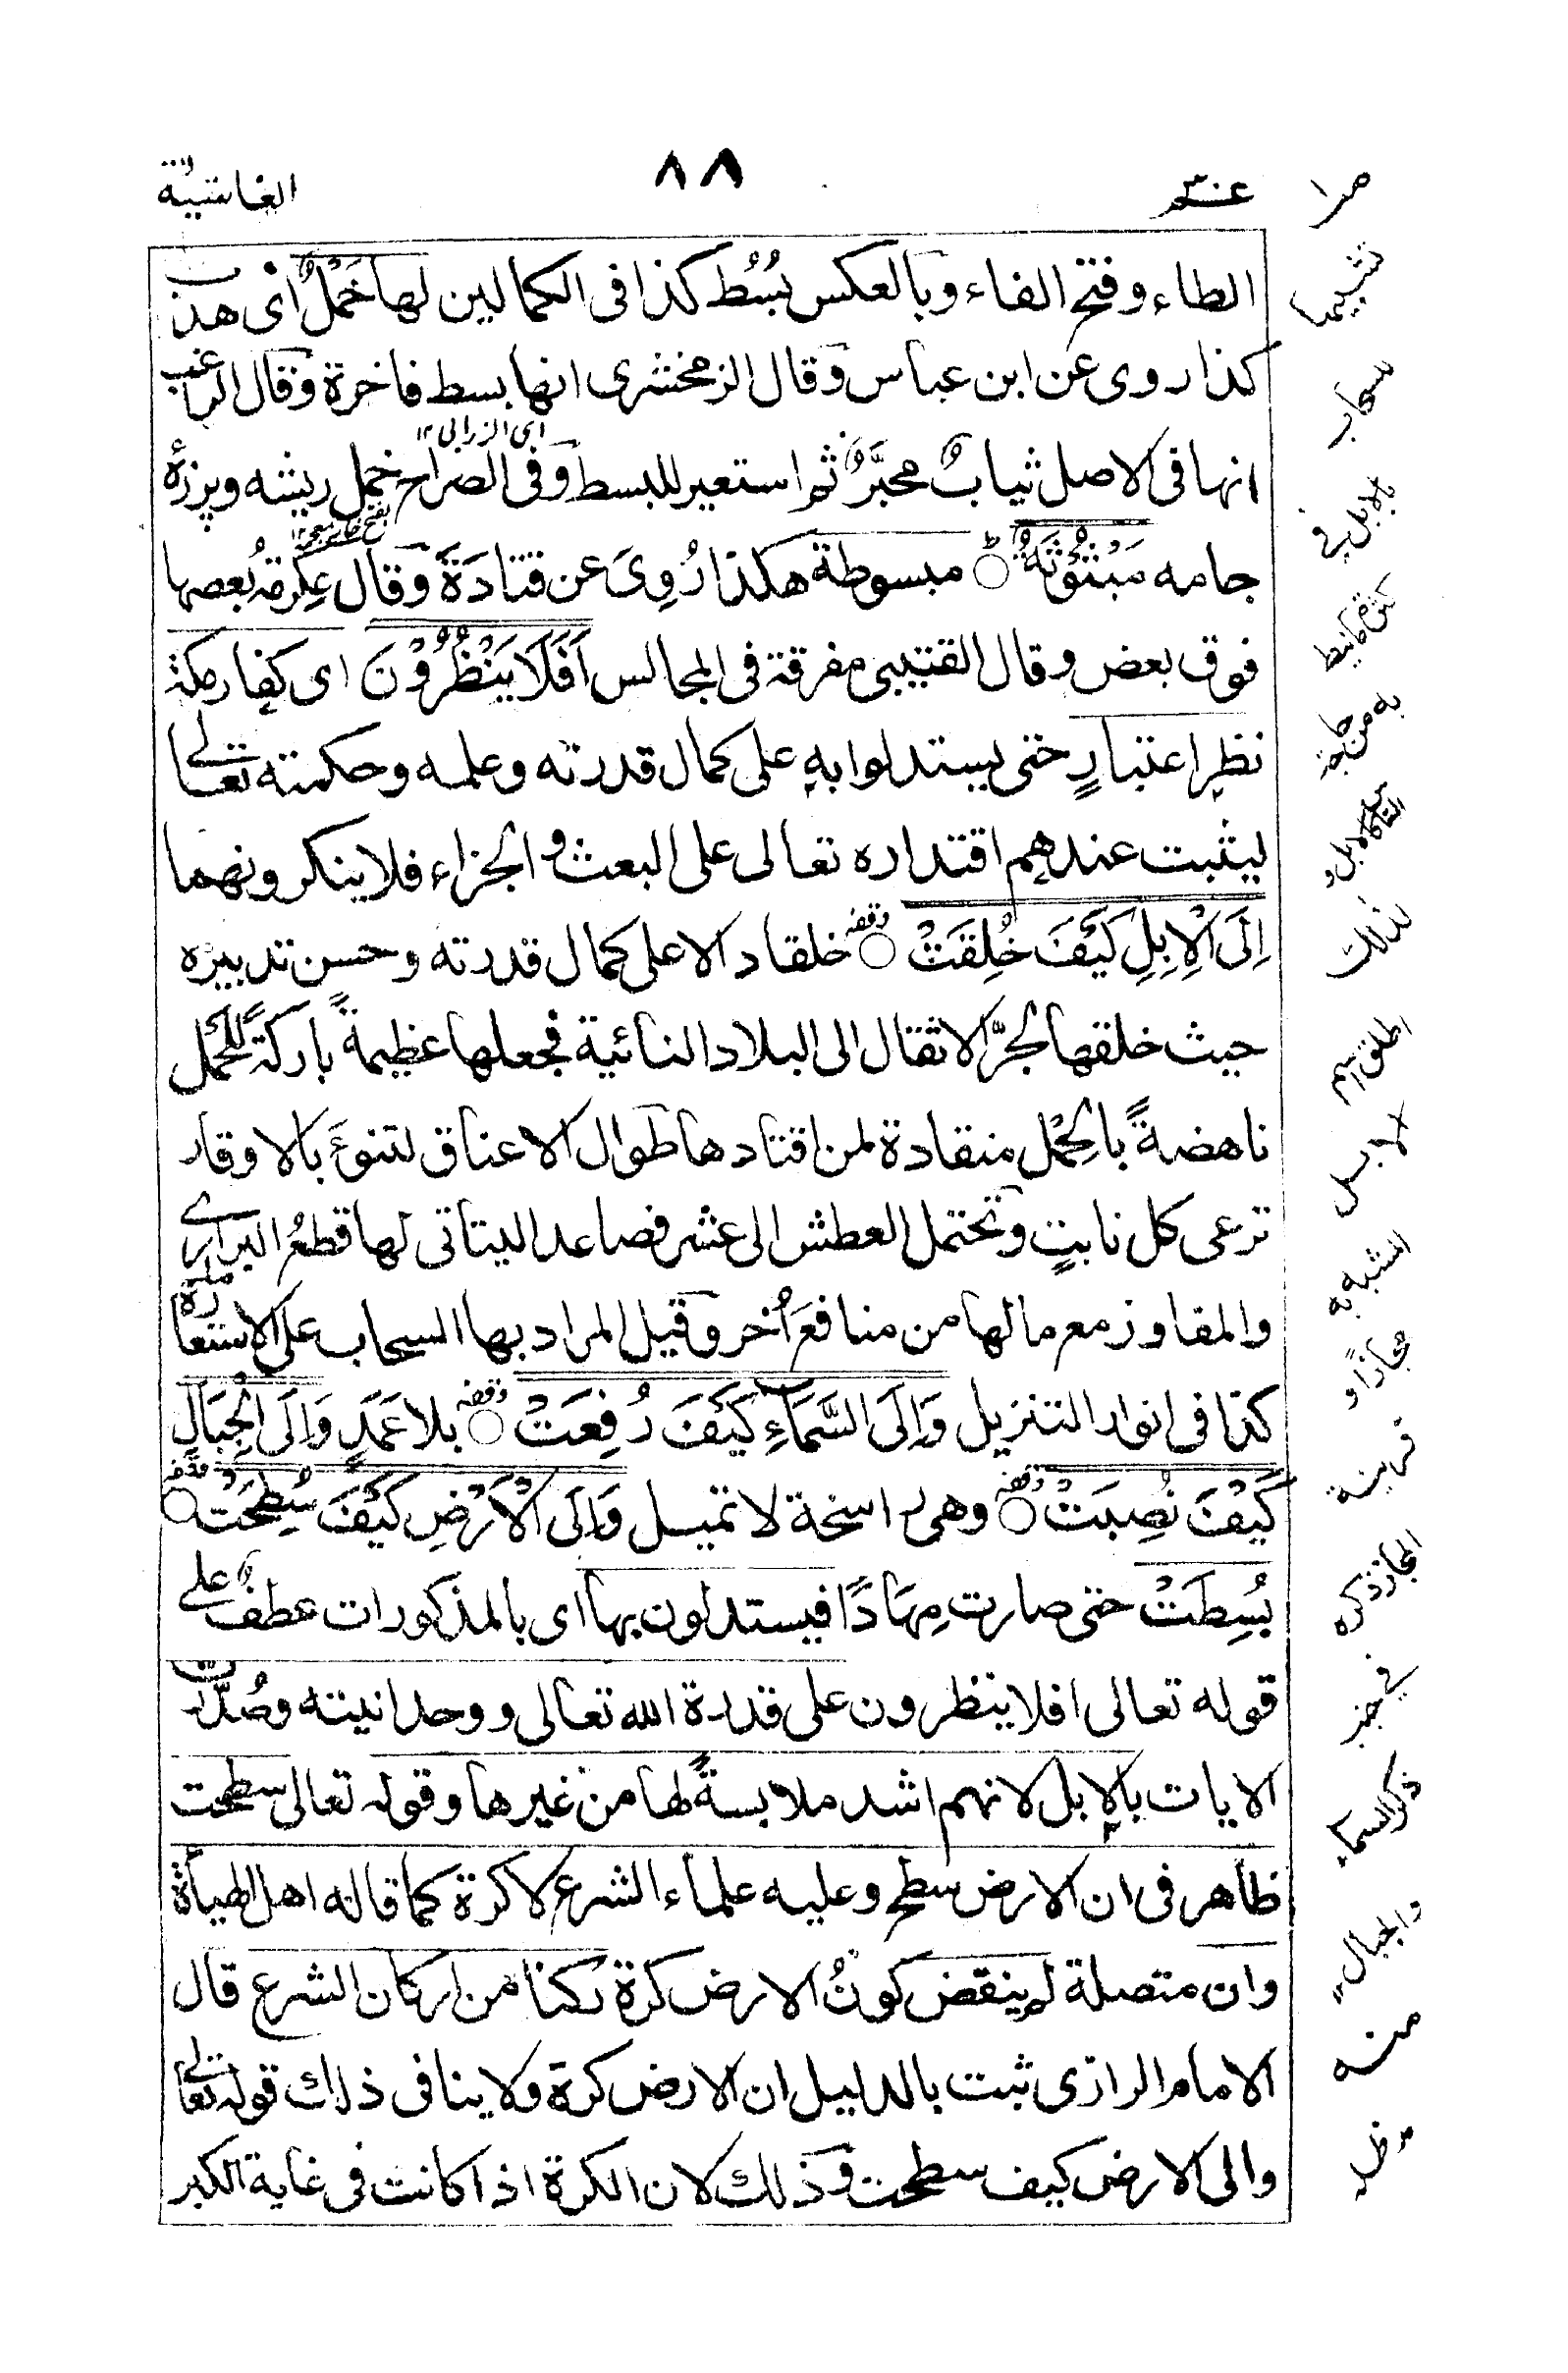 عم ٨٨ الغاشية
الطاء وفتح الفاء وبالعكس بُسُط كذا فى الكمالين لها خَمْلٌ اى هدب
كذا روى عن ابن عباس وقال الزمخشرى انها بسط فاخرة وقال الراغب
اى الزرابى ١٢
انها فى الاصل ثيابٌ محبَّرٌ ثم استعير للبسط وفى الصراح خمل ريشه وپرزهٔ
جامه مَبْثُوْثَةٌ ۝ مبسوطة هكذا رُوِىَ عن قتادَةَ وقال عِكرمة بعضها
فوق بعض وقال القتيبى مفرقة فى المجالس اَفَلَا يَنْظُرُوْنَ اى كفار مكة
نظر اعتبارٍ حتى يستدلوا به على كمال قدرته وعلمه وحكمته تعالى
ليثبت عندهم اقتداره تعالى على البعث والجزاء فلا ينكرونهما
اِلَى الْاِبِلِ كَيْفَ خُلِقَتْ ۝ وقفة خلقا دالا على كمال قدرته وحسن تدبيره
حيث خلقها لجرّ الاثقال الى البلاد النائية فجعلها عظيمةً باركةً للحمل
ناهضةً بالحِمْل منقادة لمن اقتادها طوال الاعناق لتنوءَ بالاوقار
ترعى كل نابتٍ وتحتمل العطش الى عشر فصاعدا ليتاتى لها قطعُ البرارى
والمفاوز مع مالها من منافعَ اُخر وقيل المراد بها السحاب على الاستعارة
كذا فى انوار التنزيل وَاِلَى السَّمَآءِ كَيْفَ رُفِعَتْ ۝ وقفة بلا عَمَدٍ وَاِلَى الْجِبَالِ
كَيْفَ نُصِبَتْ ۝ وقفة وهى راسخة لا تميل وَاِلَى الْاَرْضِ كَيْفَ سُطِحَتْ ۝ وقفة
بُسِطَتْ حتى صارت مِهَادًا فيستدلون بها اى بالمذكورات عطفٌ على
قوله تعالى افلا ينظرون على قدرة الله تعالى ووحدانيته وصُدّرت
الايات بالابل لانهم اشد ملابسةً لها من غيرها وقوله تعالى سطحت
ظاهر فى ان الارض سطح وعليه علماء الشرع لا كرة كما قاله اهل الهيأة
وان متصلة لم ينقض كونُ الارض كرة ركنا من اركان الشرع قال
الامام الرازى ثبت بالدليل ان الارض كرة ولا ينافى ذلك قوله تعالى
والى الارض كيف سطحت وذلك لان الكرة اذا كانت فى غاية الكبر
تشبيها
سحاب
بالابل فى
لذلك
اطلق اسم
الابل
المشبه به
مجازا و
قرينة
المجاز ذكره
ذكر السماء
والجبال ١٢
منه
مدظله